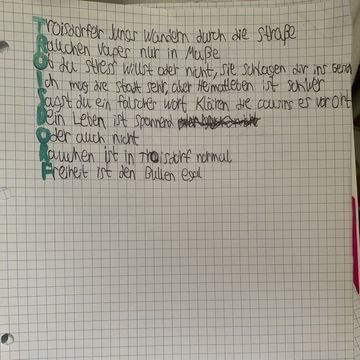 Troisdorfer Jungs wandern durch die Straße
Rauchen Vapes nur in Maße
Ob du stress willst oder nicht, sie schlagen dir ins Gesicht
Ich mag die stadt sehr, aber Heimatleben ist schwer
Sagst du ein falsches wort klären die cousins es vor Ort
Dein Leben ist spannend
Oder auch nicht
Rauchen ist in TROisdorf normal
Freiheit ist den Bullen egal